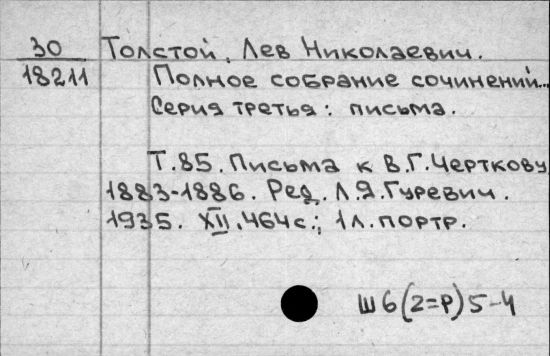 30 Толстой, Лев Николаевич.
18211 Полное собрание сочинений...
Серия третья: письма.
Т.85. Письма к В.Г.Черткову
1883-1886. Ред. Л.Я.Гуревич.
1935. XII, 464с.; 1л. портр.
Ш6(2=Р)5-4